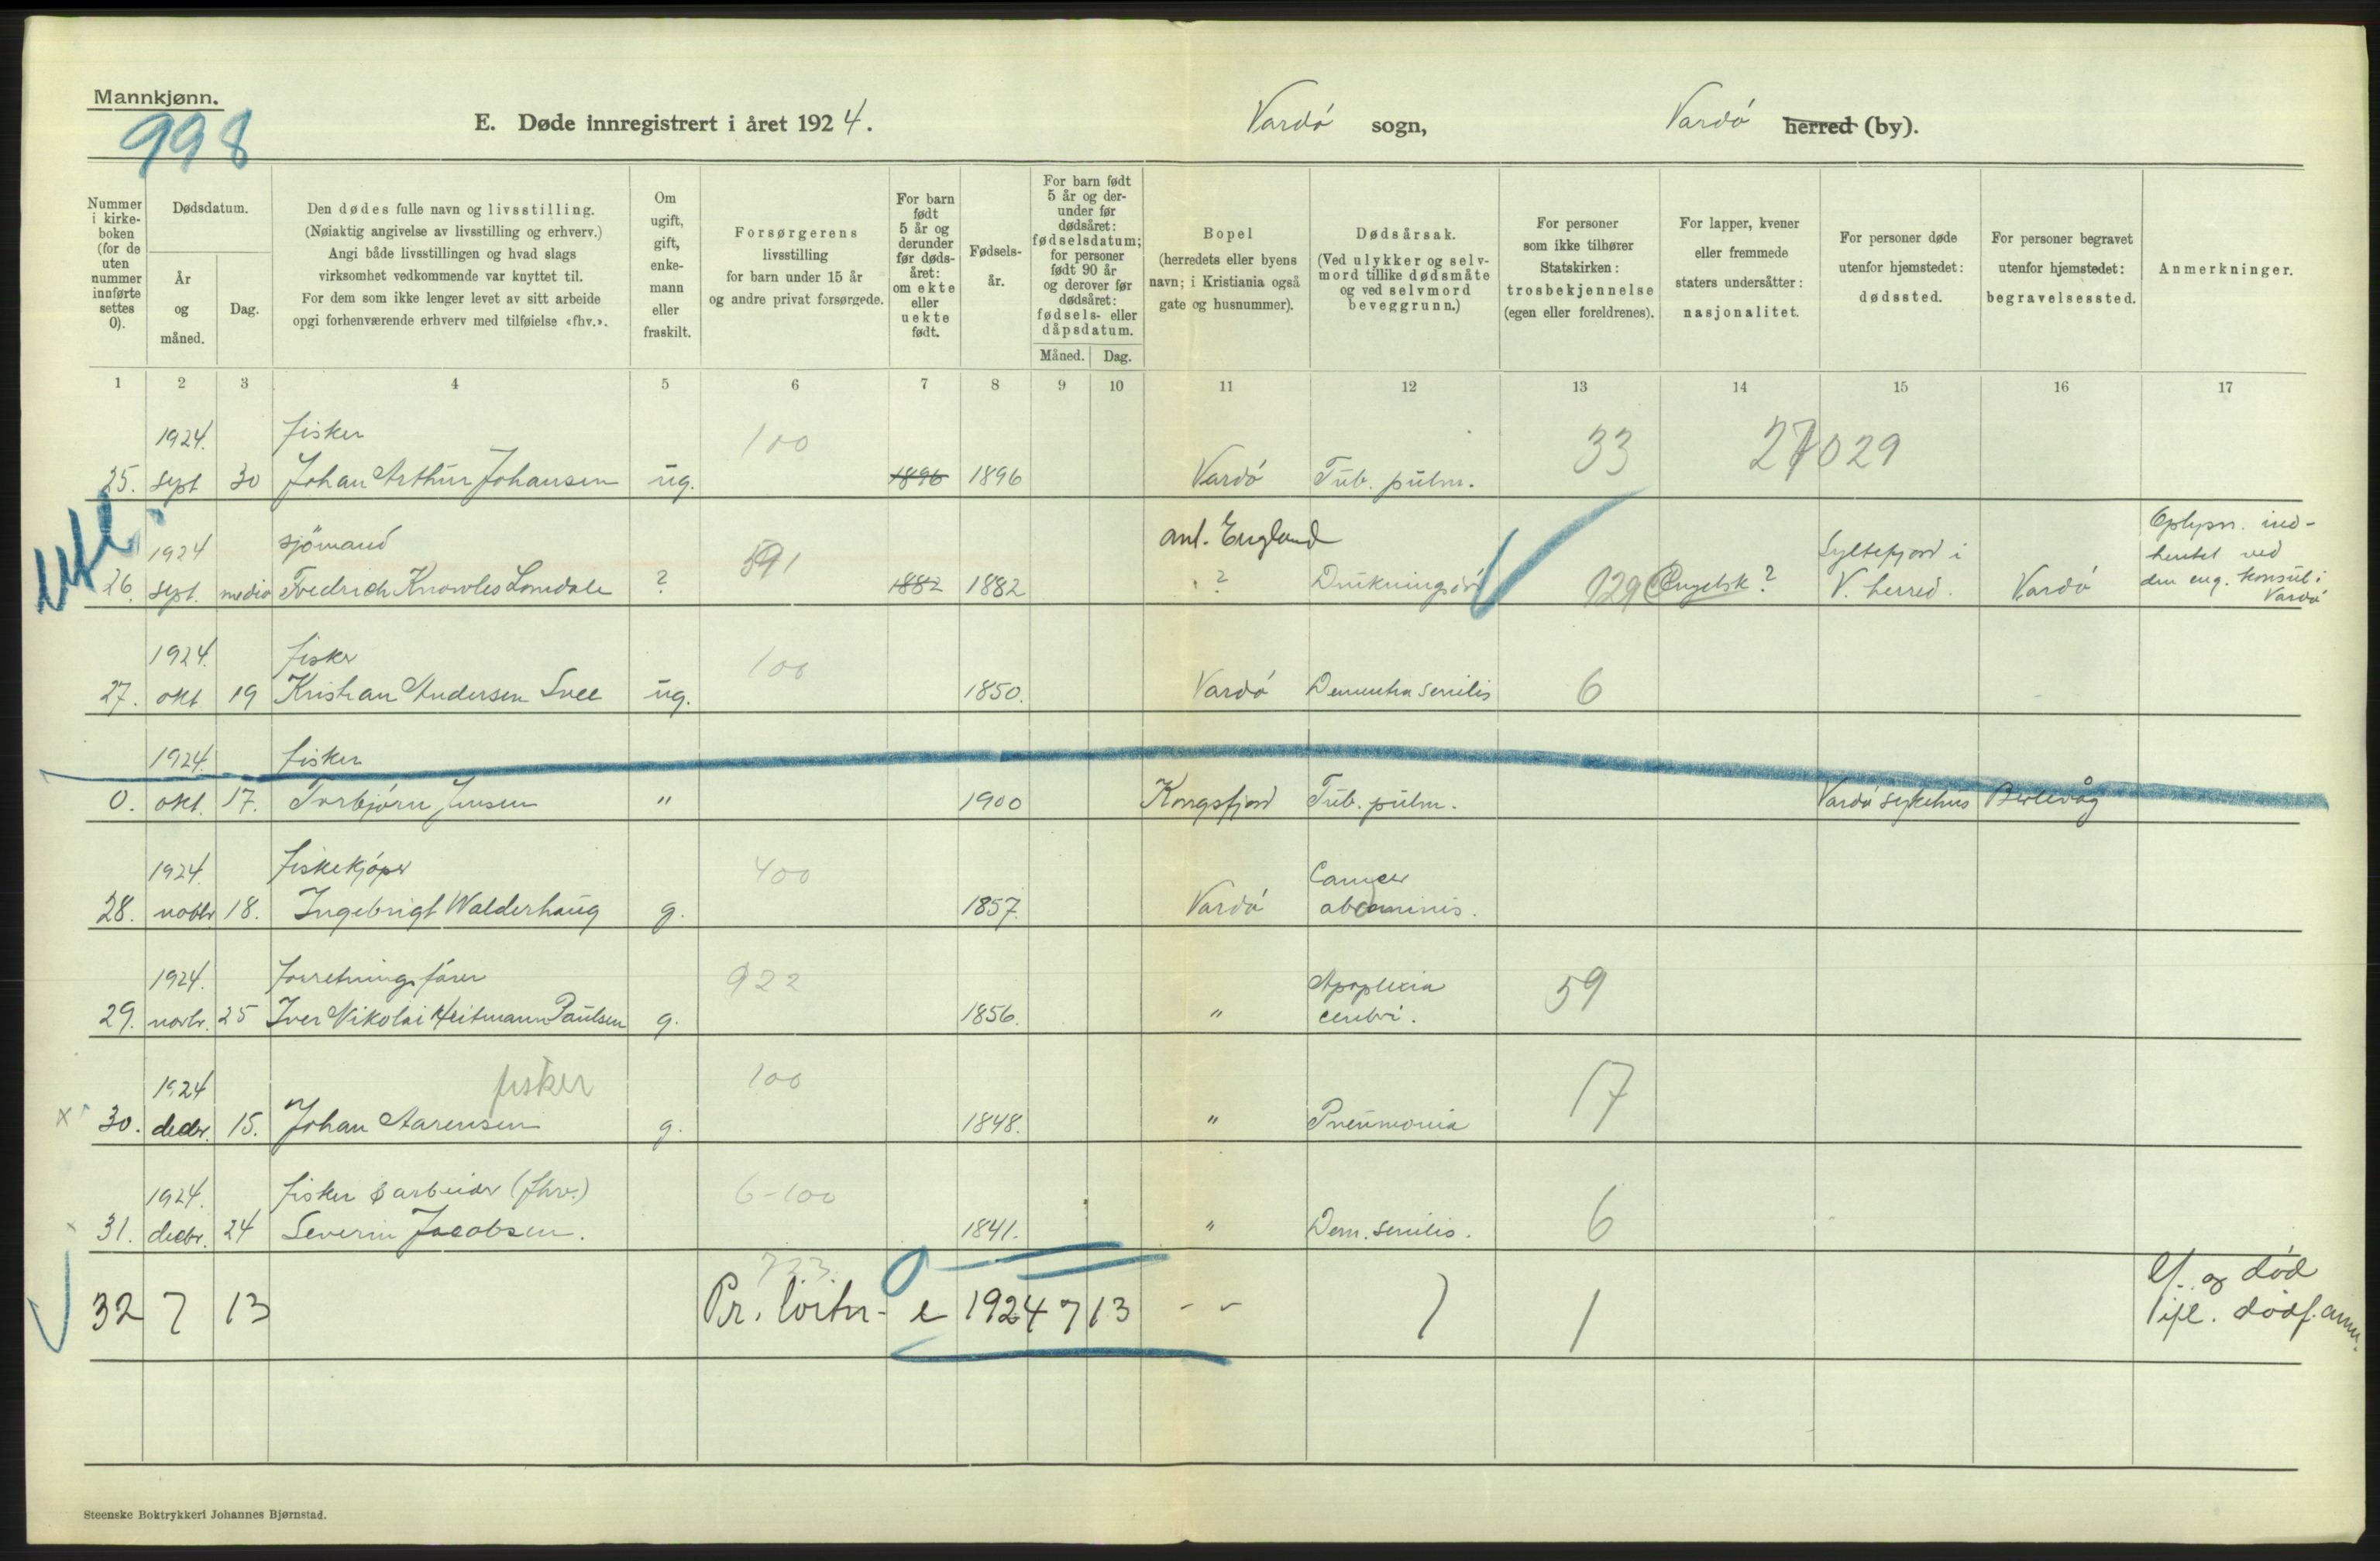 Mannkjønn.
998
E. Døde innregistrert i året 1924.
Vardö sogn,
Vardö herred (by).
Nummer i kirke-boken (for de uten nummer innførte settes 0).
Dødsdatum.
År og måned.
Dag.
Den dødes fulle navn og livsstilling.
(Nøiaktig angivelse av livsstilling og erhverv.)
Angi både livsstillingen og hvad slags
virksomhet vedkommende var knyttet til.
For dem som ikke lenger levet av sitt arbeide
opgi forhenværende erhverv med tilføielse «fhv.».
Om ugift, gift, enke-mann eller fraskilt.
Forsørgerens
livsstilling
for barn under 15 år
og andre privat forsørgede.
For barn født 5 år og derunder før døds-året: om ekte eller uekte født.
Fødsels-år.
For barn født 5 år og der-under før dødsåret: fødselsdatum; for personer født 90 år og derover før dødsåret: fødsels- eller dåpsdatum.
Måned. Dag.
Bopel
(herredets eller byens
navn; i Kristiania også
gate og husnummer).
Dødsårsak.
(Ved ulykker og selv-
mord tillike dødsmåte
og ved selvmord
beveggrunn.)
For personer
som ikke tilhører
Statskirken:
trosbekjennelse
(egen eller foreldrenes).
For lapper, kvener
eller fremmede
staters undersåtter:
nasjonalitet.
For personer døde
utenfor hjemstedet:
dødssted.
For personer begravet
utenfor hjemstedet:
begravelsessted.
Anmerkninger.
1 2 3 4 5 6 7 8 9 10 11 12 13 14 15 16 17
1924. fisker 100 33 27029
25. sept 30 Johan Arthur Johansen ug. 1896 1896 Vardö Tub. pulm.
1924 sjömand 591 ant. England Syltefjord i Oplysn. ind-
hentet ved
26. sept. medio Fredrich Knowles Lonsdale ? 1882 1882 ? Drukningsdöd 129 Engelsk? V. herred. Vardö den eng. konsul i
Vardö
1924. fisker 100
27. okt. 19 Kristian Andersen Svee ug. 1850. Vardö Dementia senilis 6
1924. fisker
0. okt. 17. Torbjörn Jensen " 1900 Kongsfjord Tub. pulm. Vardö sykehus Berlevåg
1924. fiskekjöper 400 Cancer
28. novbr 18. Ingebrigt Walderhaug g. 1857. Vardö abdominis.
1924. Forretningsförer 922 Apoplexia 59
29. novbr. 25 Iver Nikolai Heitmann Paulsen g. 1856. " cerebri.
1924 fisker 100 17
x 30. decbr. 15. Johan Aarensen g. 1848. " Pneumonia
1924. fisker & arbeider (fhv.) 6-100
x 31. decbr. 24 Severin Jacobsen. 1841. " Dem. senilis. 6
723.
32 7 13 Pr. löitn- e 1924 7 13 - - 1 1 lf. og död
ifl. dödf. anm.
Steenske Boktrykkeri Johannes Bjørnstad.